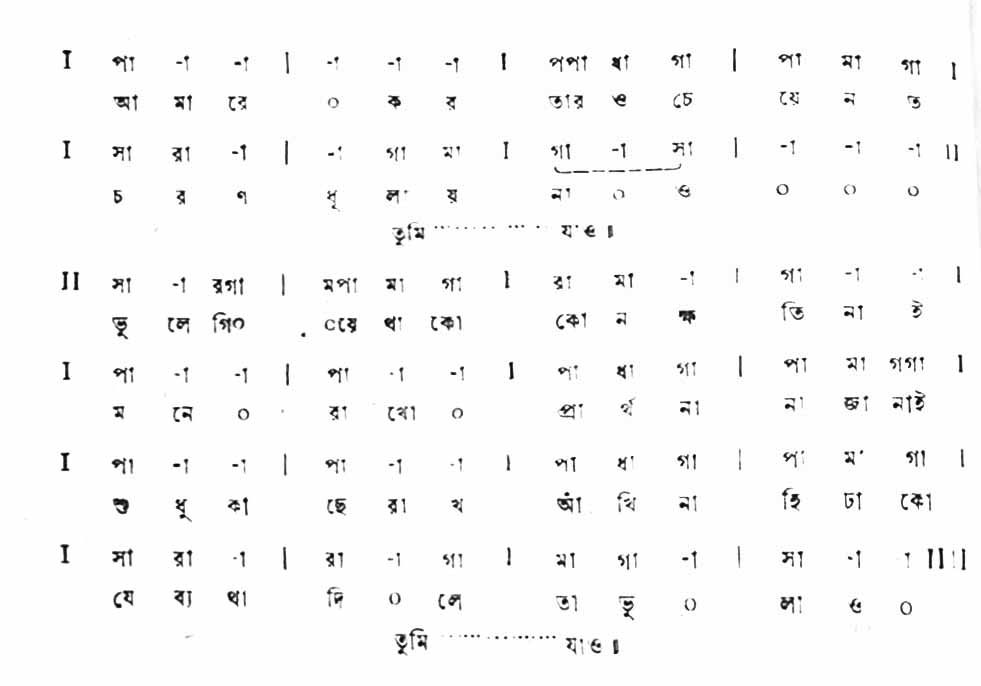 I পা -া -া | -া -া -া I পপা ধা গা | পা মা গা I
আ মা রে ০ ক র তার ও চে যে ন ত
I সা রা -া | -া গা মা I গা -া সা | -া -া -া II
চ র ণ ধূ লা য় না ০ ও ০ ০ ০
তুমি ............ যাও॥
II সা -া রগা | মপা মা গা I রা মা -া | গা -া -া I
ভু লে গি০ ০য়ে থা কো কো ন ক্ষ তি না ই
I পা -া -া | পা -া -া I পা ধা গা | পা মা গগা I
ম নে ০ রা খো ০ প্রা র্থ না না জা নাই
I পা -া -া | পা -া -া I পা ধা গা | পা মা গা I
শু ধু কা ছে রা খ আঁ খি না হি ঢা কো
I সা রা -া | রা -া গা I মা গা -া | সা -া -া IIII
যে ব্য থা দি ০ লে তা ভু ০ লা ও ০
তুমি .................. যাও॥